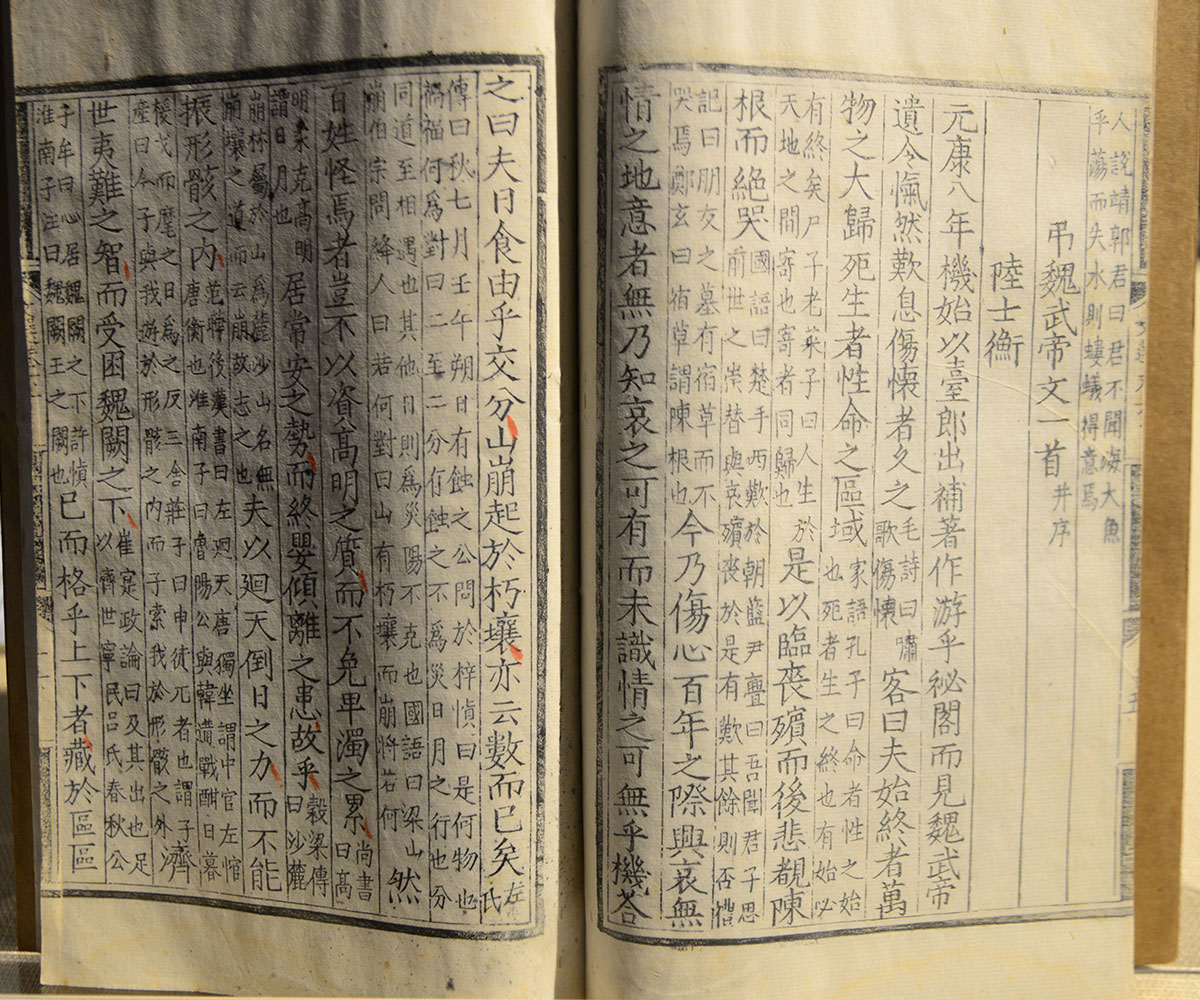 人說靖郭君曰君不聞海大魚
乎蕩而失水則螻蟻得意焉
弔魏武帝文一首 并序
陸士衡
元康八年機始以臺郎出補著作游乎祕閣而見魏武帝
遺令愾然歎息傷懷者久之 毛詩曰嘯歌傷懷 客曰夫始終者萬
物之大歸死生者性命之區域 家語孔子曰命者性之始也死者生之終也有始必
有終矣尸子老萊子曰人生於天地之間寄也寄者同歸也 是以臨喪殯而後悲覩陳
根而絶哭 國語曰楚手西歎於朝藍尹亹曰吾聞君子思前世之崇替與哀殯喪於是有歎其餘則否禮
記曰朋友之墓有宿草而不哭焉鄭玄曰宿草謂陳根也 今乃傷心百年之際興哀無
情之地意者無乃知哀之可有而未識情之可無乎機答
之曰夫日食由乎交分山崩起於朽壤亦云數而已矣 左氏
傳曰秋七月壬午朔日有蝕之公問於梓慎曰是何物也禍福何為對曰二至二分有蝕之不為災日月之行也分
同道至相過也其他日則為災陽不克也國語曰梁山崩伯宗問絳人曰若何對曰山有朽壤而崩將若何 然
百姓怪焉者豈不以資高明之質而不免卑濁之累 尚書曰高
明柔克高明謂日月也 居常安之勢而終嬰傾離之患故乎 穀梁傳曰沙麓
崩林屬於山為麓沙山名無崩壞之道而云崩故志之也 夫以廻天倒日之力而不能
振形骸之內 范曄後漢書曰左廻天唐獨坐謂中官左悺唐衡也淮南子曰魯陽公與韓遘戰酣日暮
援戈而麾之日為之反三舍莊子曰申徒兀者也謂子產曰今子與我遊於形骸之內而子索我於形骸之外 濟
世夷難之智而受困魏闕之下 崔寔政論曰及其出也足以濟世寧民呂氏春秋公
子牟曰心居魏闕之下許慎淮南子注曰魏闕王之闕也 已而格乎上下者藏於區區